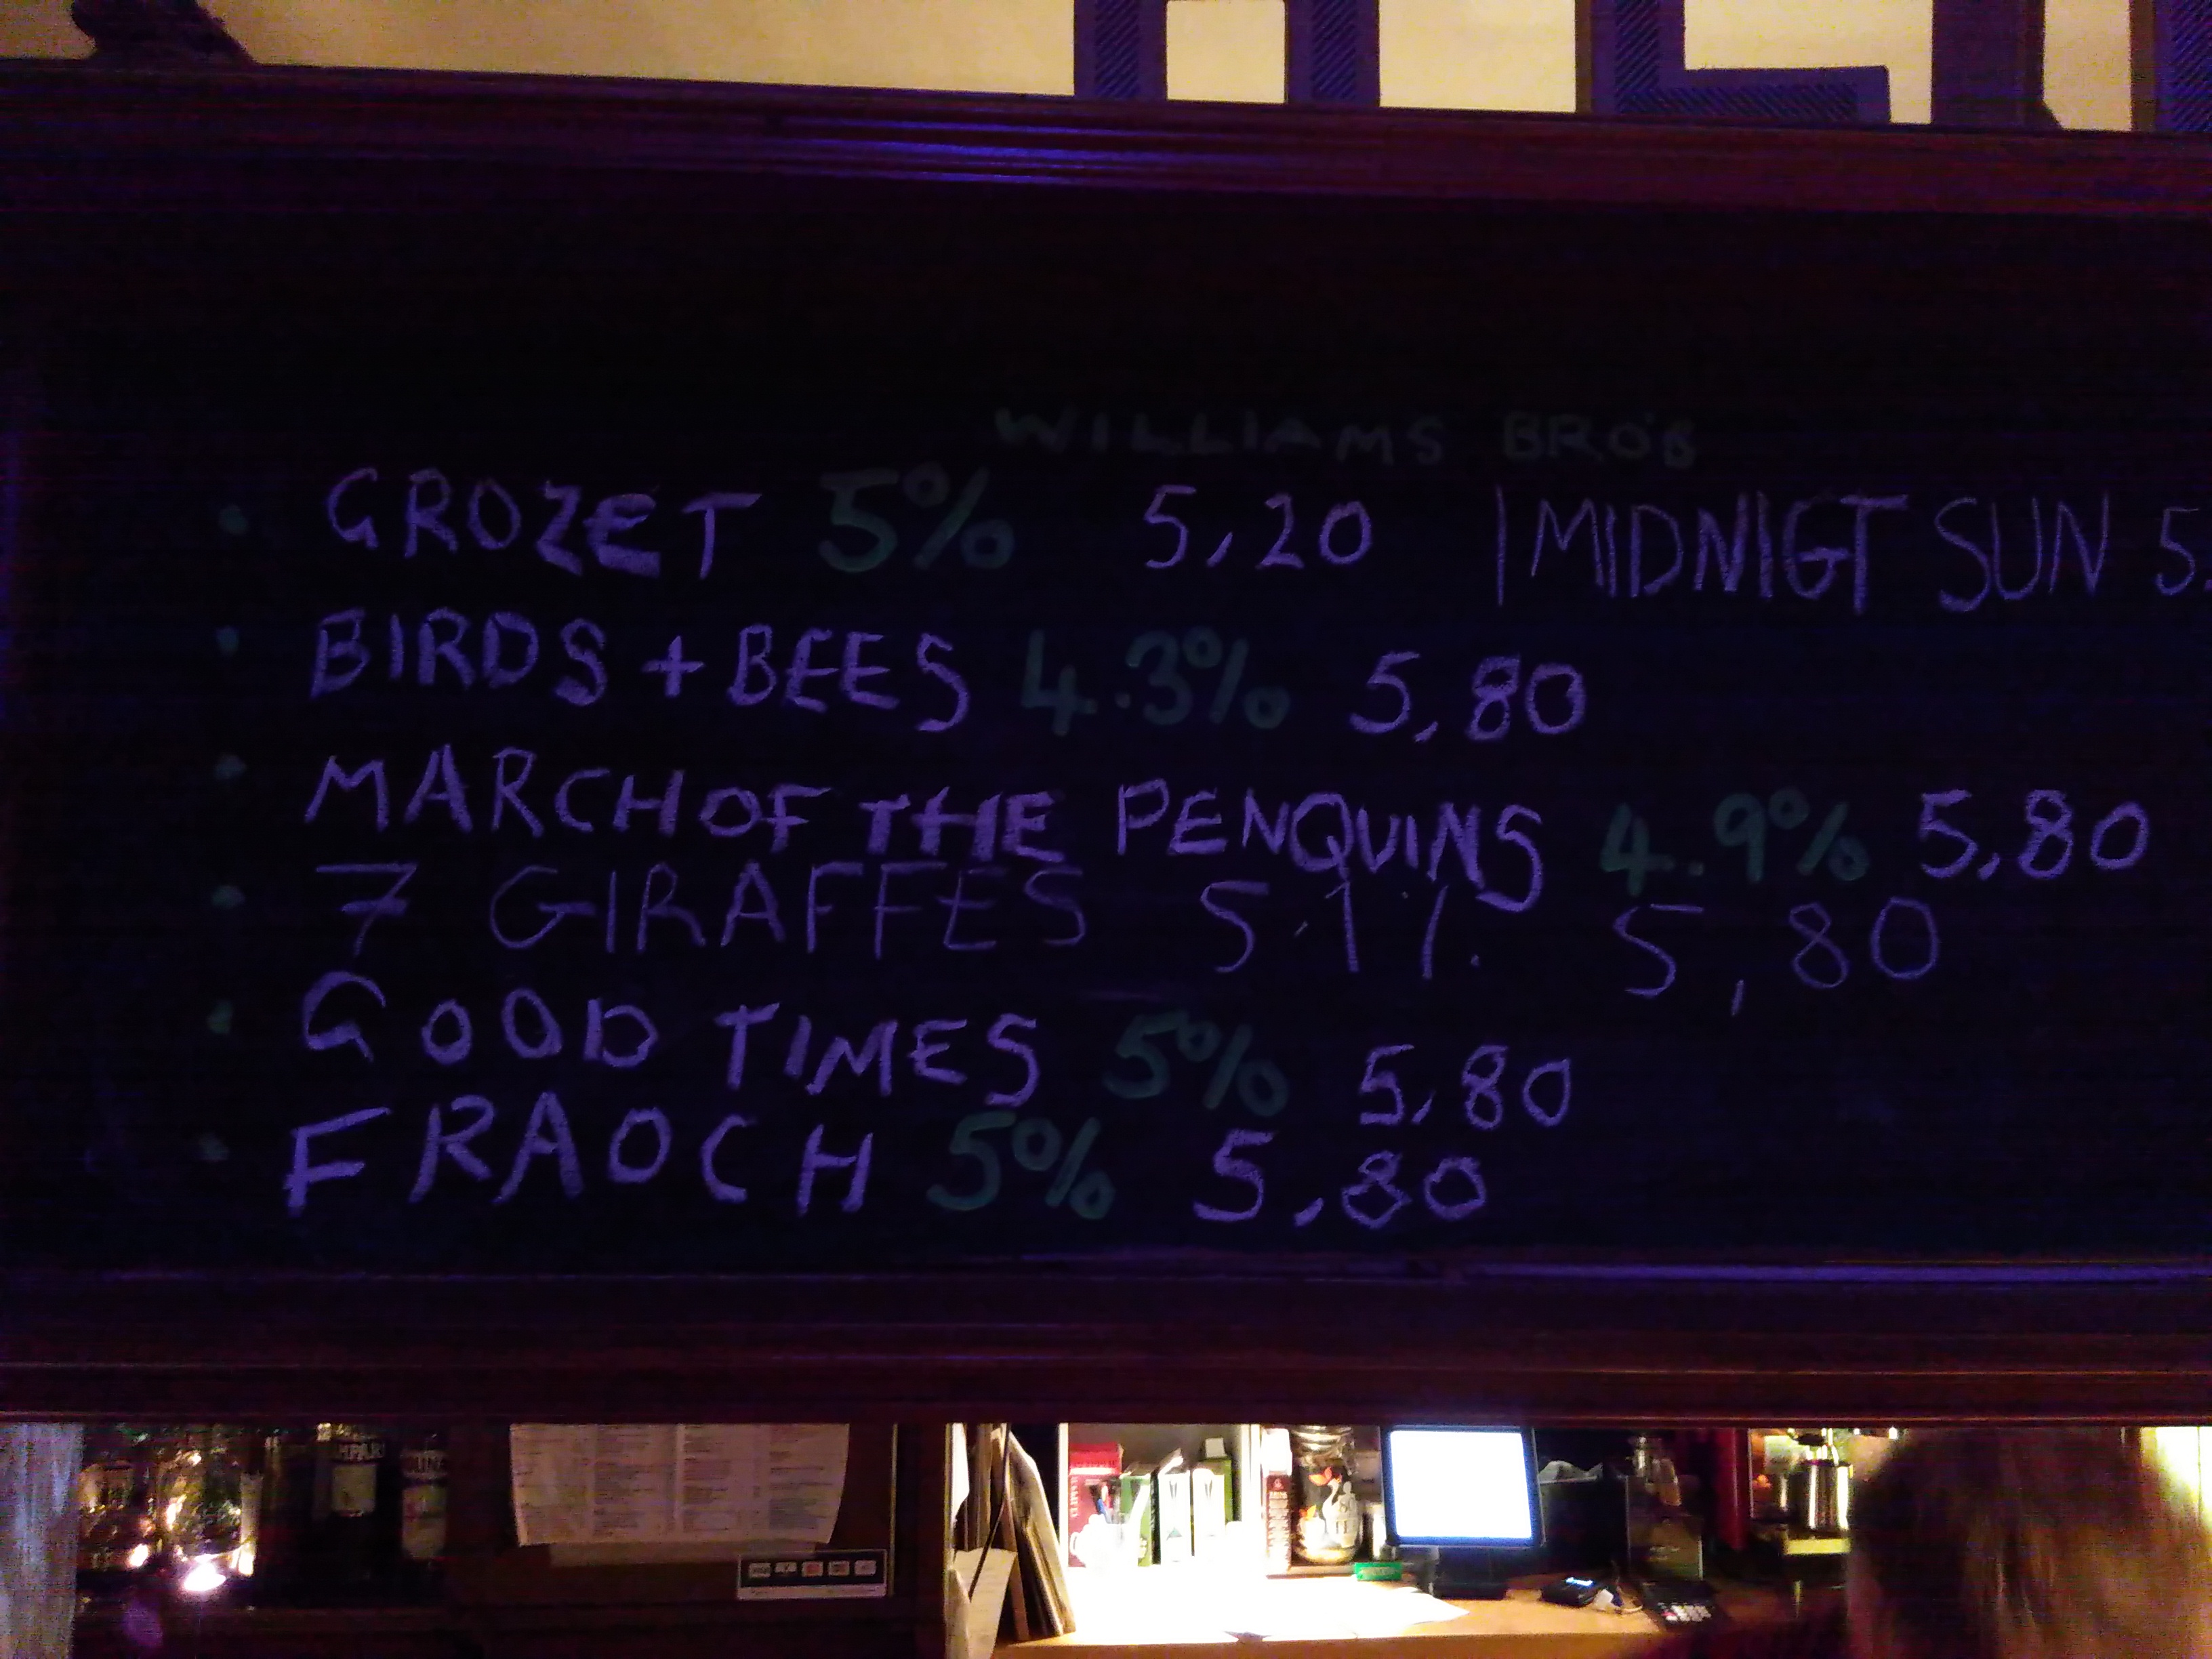 WILLIAMS BRO'S
• GROZET 5% 5,20 | MIDNIGT SUN 5.
• BIRDS + BEES 4.3% 5,80
• MARCH OF THE PENQUINS 4.9% 5,80
• 7 GIRAFFES 5.1% 5,80
• GOOD TIMES 5% 5,80
• FRAOCH 5% 5,80